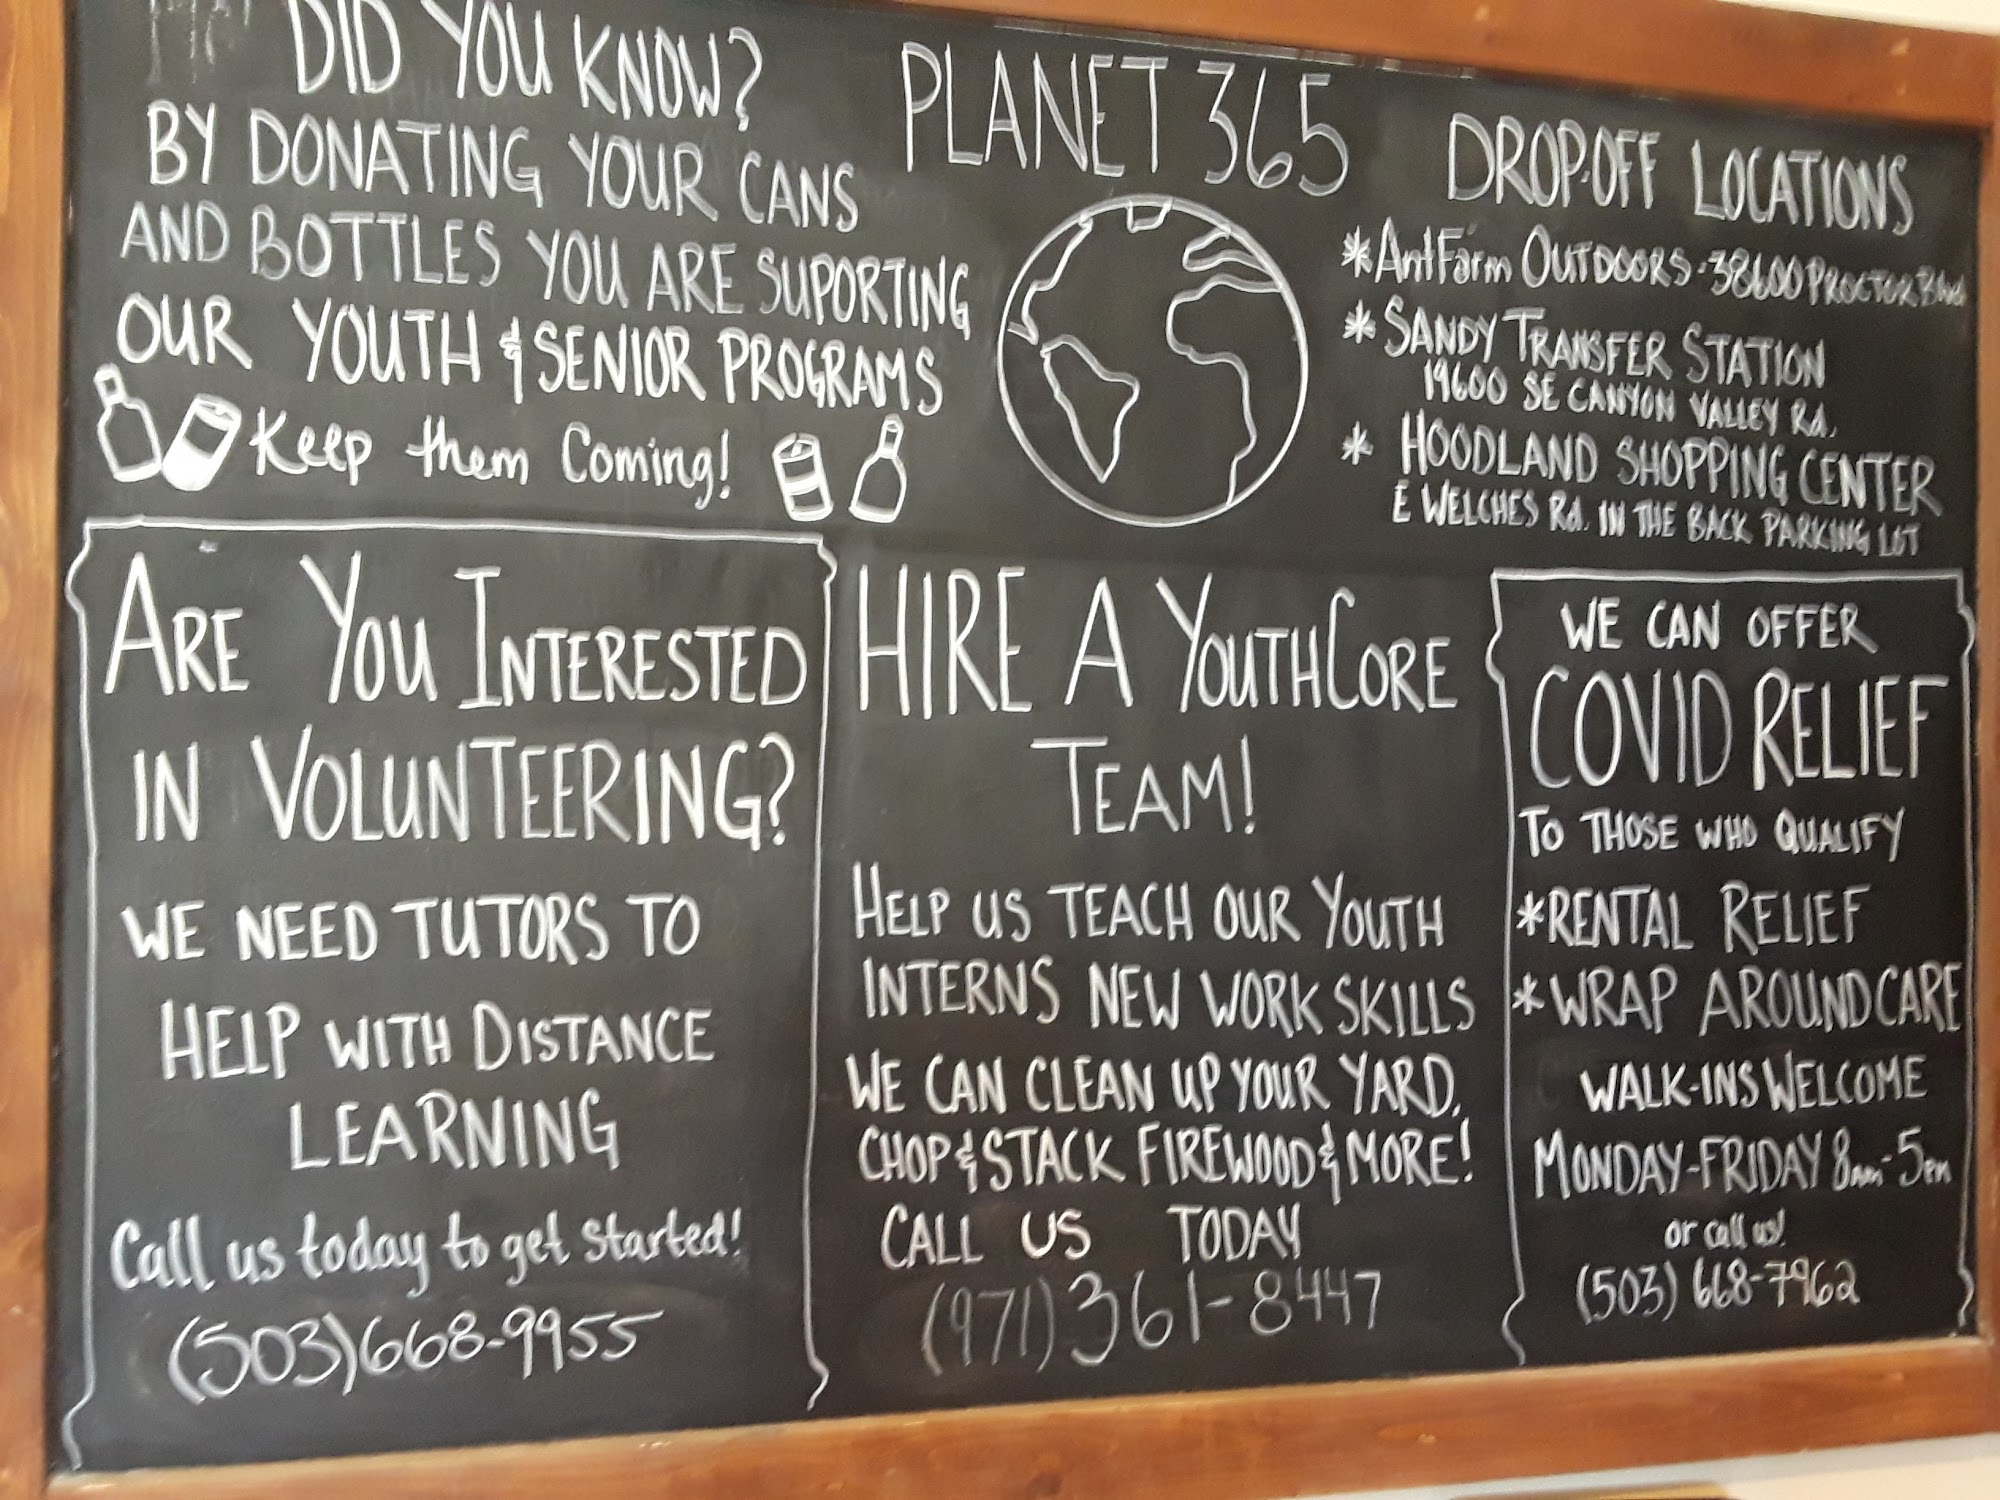 DID YOU KNOW?
BY DONATING YOUR CANS
AND BOTTLES YOU ARE SUPORTING
OUR YOUTH & SENIOR PROGRAMS
Keep them Coming!
PLANET 365
DROP-OFF LOCATIONS
*AntFarm OUTDOORS-38600 PROCTOR Blvd
* SANDY TRANSFER STATION
19600 SE CANYON VALLEY Rd.
* HOODLAND SHOPPING CENTER
E WELCHES Rd. IN THE BACK PARKING LOT
ARE YOU INTERESTED
IN VOLUNTEERING?
WE NEED TUTORS TO
HELP WITH DISTANCE
LEARNING
Call us today to get started!
(503)668-9955
HIRE A YOUTHCORE
TEAM!
HELP US TEACH OUR YOUTH
INTERNS NEW WORK SKILLS
WE CAN CLEAN UP YOUR YARD,
CHOP & STACK FIREWOOD & MORE!
CALL US TODAY
(971)361-8447
WE CAN OFFER
COVID RELIEF
TO THOSE WHO QUALIFY
*RENTAL RELIEF
*WRAP AROUND CARE
WALK-INS WELCOME
MONDAY-FRIDAY 8am-5pm
or call us!
(503) 668-7962